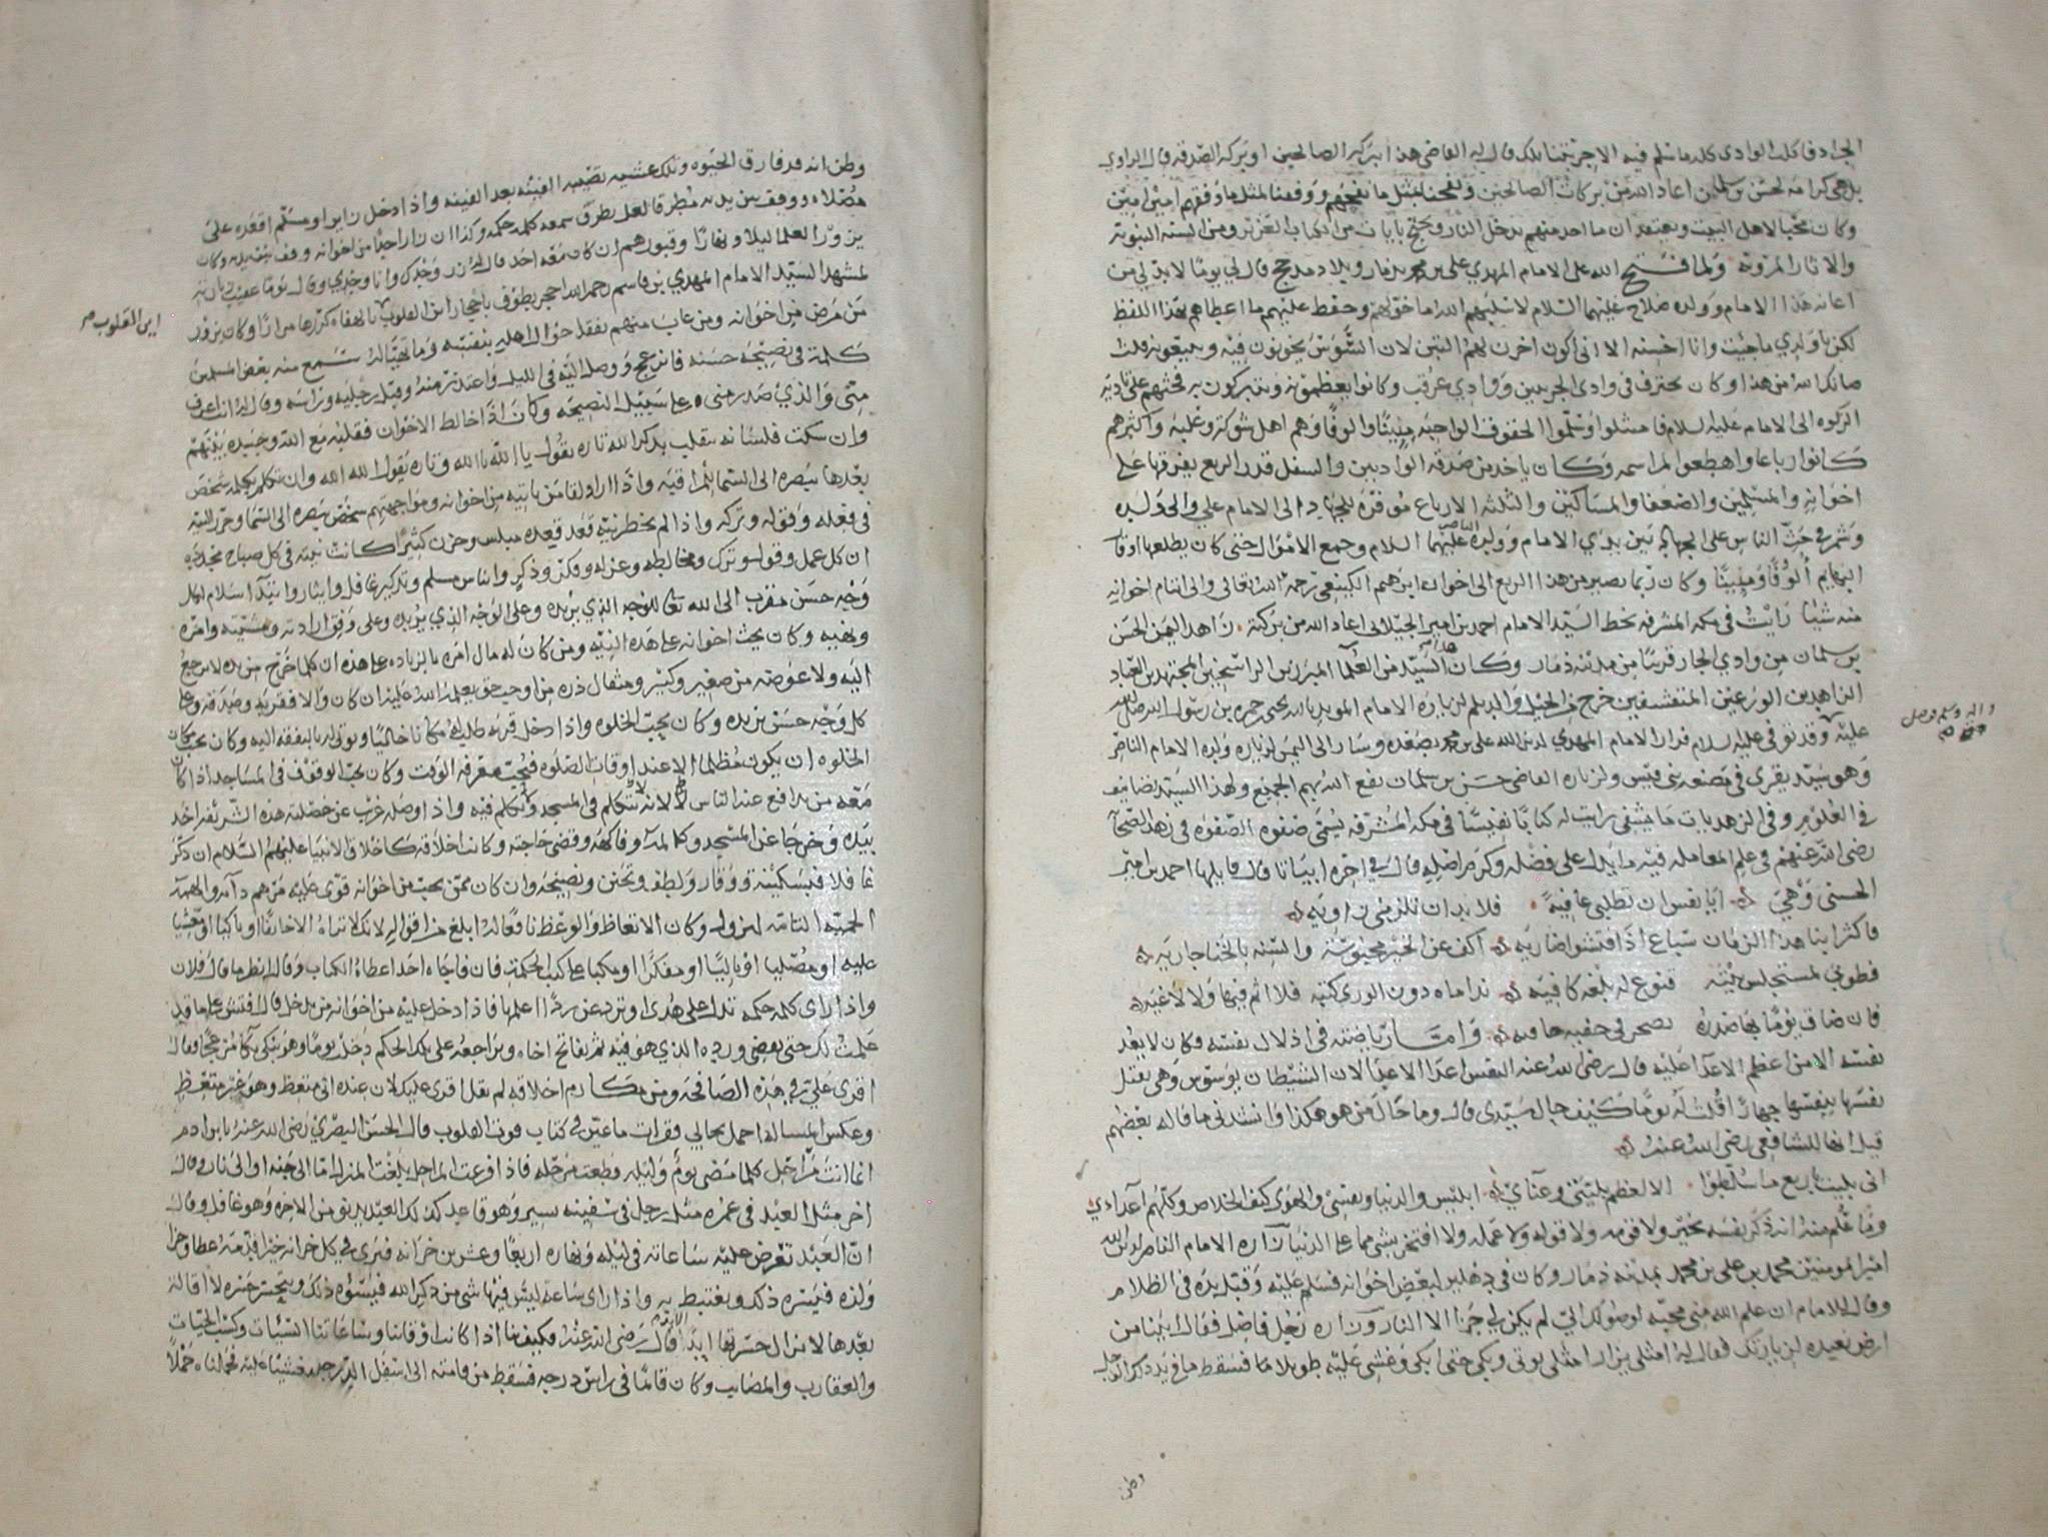 الجراد فاكلت الوادي كله ما سلم فيه الا جربتنا تلك قال له القاضي هذا ببركة الصالحين او بركة الصدقة قال الراوي
بل هي كرامة لحسن بن سلمان اعاد الله من بركات الصالحين ونفحنا بمثل ما نفحهم ووفقنا لمثل ما وفقهم امين امين
وكان محبا لاهل البيت ويعتقد ان ما احد منهم يدخل النار ويحتج بايات من الكتاب العزيز ومن السنه النبويه
والاثار المرويه ولما فتح الله على الامام المهدي علي بن محمد بذمار وبلاد مذحج قال لي يوما لا بد لي من
اعانة هذا الامام وولده صلاح عليهما السلام لا سلبهم الله ما خولهم وحفظ عليهم ما اعطاهم بهذا اللفظ
لكن يا ولدي ما جيت وانا احسنه الا اني اكون اخرن لهم التبن لان السوس يخونون فيه ويبيعونه قلت
ما نكد اس من هذا وكان يحترف في وادي الجربتين ووادي عرقب وكانوا يعظمونه ويتبركون به فحثهم على تاديه
الزكوه الى الامام عليه السلام فامتثلوا وسلموا الحقوق الواجبه مييتا والوفا وهم اهل شوكة وغلبه واكثرهم
كانوا رباعا واهطعوا لمراسمه وكان ياخذ من صدقة الواديين والسفل قدر الربع يفرقها على
اخوانه والمسلمين والضعفا والمساكين والثلثه الارباع موفره للجهاد الى الامام علي والى ولده
وشمر في حث الناس على الجهاد بين يدي الامام وولده الناصر عليهما السلام وجمع الاموال حتى كان يطلعها اوقار
البهايم الوفا ومييتا وكان ربما يصير من هذا الربع الى اخوان ابرهيم الكينعي رحمه الله تعالى والى ايتام اخوانه
منه شيئا رايت في مكه المشرفه بخط السيد الامام احمد بن امير الجيلاني اعاد الله من بركته زاهد اليمن الحسن
بن سلمان من وادي الحار قريبا من مدينه ذمار وكان هذا السيد من العلما المبرزين الراسخين المجتهدين العباد
الزاهدين الورعين المتقشفين خرج من الجيل والديلم لزيارة الامام المويد بالله يحيى بن حمزه بن رسول الله صلى الله
واله وسلم فوصل
عليه وقد توفي عليه السلام فزار الامام المهدي لدين الله علي بن محمد بصعده وسار الى اليمن لزيارة ولده الامام الناصر
وهو سيد يقرى في مصنعه بني قيس ولزياره القاضي حسن بن سلمان نفع الله بهم الجميع ولهذا السيد تصانيف
في العلوم وفي الزهديات ما يشفي رايت له كتابا نفيسا في مكه المشرفه يسمى صفوه الصفوه في زهد الصحابه
رضي الله عنهم وعلم المعامله فيه ما يدل على فضله وكرم اصله قال في اخره ابياتا قال قايلها احمد بن امير
الحسني وهي ايا نفس ان تطلبي عافيه فلا بد ان تلزمي زاويه
فاكثر ابنا هذا الزمان سباع اذا فتشوا ضاريه اكف عن الخير محبوسه والسنه بالخنا جاريه
فطوبى لمستحلس بيته قنوع له بلغة كافيه نداماه دون الورى كتبه فلا اثم فيها ولا لاغيه
فان ضاق يوما بها صدره تصحر في حقبه حافيه واما رياضته في اذلال نفسه وكان لا يعد
نفسه الا من اعظم الاعدا عليه قال رضي الله عنه النفس اعدا الاعدا لان الشيطان يوسوس وهي يقتل
نفسها بنفسها جهارا قلت له يوما كيف حال سيدي قال وما حال من هو هكذا وانشدني ما قاله بعضهم
قيل انها للشافعي رضي الله عنه
اني بليت باربع ما سلطوا الا لعظم بليتي وعناي ابليس والدنيا ونفسي والهوى كيف الخلاص وكلهم اعداءي
وما علم منه انه ذكر نفسه بخير ولا قومه ولا قوله ولا عمله ولا افتخر بشي مما على الدنيا زاره الامام الناصر لدين الله
امير المومنين محمد بن علي بن محمد بمدينه ذمار وكان في دهليز لبعض اخوانه فسلم عليه وقبل يده في الظلام
وقال للامام ان علم الله مني محبه لوصولك الي لم يكن لي جزا الا النار وزاره رجل فاضل فقال له جئنا من
ارض بعيده لزيارتك فقال له امثلي يزار امثلي يوتى وبكى حتى ابكى وغشي عليه طويلا ما فسقط مافي يد ذكر الرجل
وظن
وظن انه قد فارق الحيوه وتلك عشيه تصيبه الفينه بعد الفينه واذا دخل زايرا ومسلم اقعده على
مصلاه ووقف بين يديه مطرقا لعل يطرق سمعه كلمه حكمه وكذا ان زار احدا من اخوانه وقف بين يديه وكان
يزور العلما ليلا ونهارا وقبورهم ان كان معه احد قال له زر وحدك وانا وحدي وقال يوما عقيب زيارته
لمشهد السيد الامام المهدي بن قاسم رحمه الله احجر يطوف باحجار اين القلوب يا لهفاه كررها مرارا وكان يزور
اين القلوب صح
من مرض من اخوانه ومن غاب منهم تفقد حوال اهله بنفسه وما تهيا له سمع منه بعض المسلمين
كلمة في نصيحه حسنه فانزعج ووصل اليه في الليل واعتذر منه وقبل رجليه وراسه وقال له انت اعرف
متى والذي صدر مني على سبيل النصيحه وكان اذا خالط الاخوان فقلبه مع الله وجسده بينهم
وان سكت فلسانه يتقلب بذكر الله تاره يقول يا الله يا الله وتاره يقول الله الله وان تكلم بكلمه شخص
بعدها ببصره الى السما للمراقبه واذا اراد لقا من ياتيه من اخوانه ومواجهتهم شخص ببصره الى السما وحرر النيه
في فعله وقوله وتركه واذا لم يخطر نيه قعد قعده مبلس وحزن كثيرا كانت نيته في كل صباح مجدده
ان كل عمل وقول وترك ومخالطه وعزله وفكر وذكر وايناس مسلم وتذكير غافل وايثار وابتدا سلام لكل
وجه حسن مقرب الى الله تعالى للوجه الذي يريده وعلى الوجه الذي يريده وعلى وفق ارادته ومشيته وامره
ونهيه وكان يحث اخوانه على هذه النيه ومن كان له مال امره بالزياده على هذه ان كلما خرج من يده لا يرجع
اليه ولا عوضه من صغير وكبير ومثقال ذره من اوجب حق يعلمه الله عليه ان كان والا فقربه وصدقه وعلى
كل وجه حسن يريده وكان يحب الخلوه واذا دخل قريه طلب له مكانا خاليا وتولى له بالبفقه اليه وكان يحب مكان
الخلوه ان يكون مظلما الا عند اوقات الصلوه فيحب معرفه الوقت وكان يحب الوقوف في المساجد اذا كان
معه من يدافع عنه الناس لانه لا يتكلم في المسجد ولا يتكلم فيه واذا وصله غريب عن خصلته هذه الشريفه اخذ
بيده وخرجا عن المسجد وكلمه وفاكهه وقضى حاجته وكانت اخلاقه كاخلاق الانبيا عليهم السلام ان ذكر
غافلا فبسكينه ووقار ولطف وتحنن ونصيحه وان كان ممن يحب من اخوانه قوى عليه من هم دآمه والهمه
الحميه التامه لمنزوله وكان الاتعاظ والوعظ نافعا له ابلغ من اقواله لانك لا تراه الا خائفا او باكيا او مغشيا
عليه او مصليا او تاليا او مفكرا او مكبا على كتب الحكمة فان فاجاه احد اعطاه الكتاب وقال انظر ما قال فلان
واذا راى كلمه حكمه تدل على هدى او ترد عن ردى اعلمها فاذا دخل عليه من اخوانه من يدخل قال فتش على ما قد
علمت لك حتى يقضي ورده الذي هو فيه ثم يفاتح اخاه ويراجعه على تلك الحكم دخلت يوما وهو يبكي بكا مزعجا وقال
اقرى علي في هذه الصافحه ومن مكارم اخلاقه لم يقل اقرى عليك لان عنده اني متعظ وهو غير متعظ
وعكس المساله احمل بحالي وقرات ما عين في كتاب قوت القلوب قال الحسن البصري رضي الله عنه يا بن ادم
انما انت مراحل كلما مضى يوم وليله قطعت مرحله فاذا فرغت المراحل بلغت المنزل اما الى جنه او الى نار وقال
اخر مثل العبد في عمره مثل رجل في سفينه تسير وهو قاعد كذلك العبد يدنو من الاخره وهو غافل وقال
ان العبد تعرض عليه ساعاته في ليله ونهاره اربعا وعشرين خزانه فيرى في كل خزانه خيرا قدمه عطا وجزا
ولذه فيسره ذلك ويغتبط به واذا راى ساعه ليس فيها شي من ذكر الله فيسوه ذلك ويتحسر حسره لا اقاله
بعدها لا من الحسرتها ابدا قال رضي الله عنه فكيف بنا اذا كانت اوقاتنا وساعاتنا السيئات وكسب الحيات
والعقارب والمصايب وكان قائما في راس درجه فسقط من قامته الى اسفل الدرجه مغشيا عليه فحملناه حملا